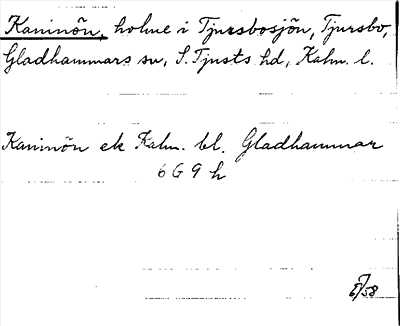 Kaninön, holme i Tjursbosjön, Tjursbo,
Gladhammars sn, S. Tjusts hd, Kalm. l.
Kaninön ek Kalm. bl. Gladhammar
6 G 9 h
58